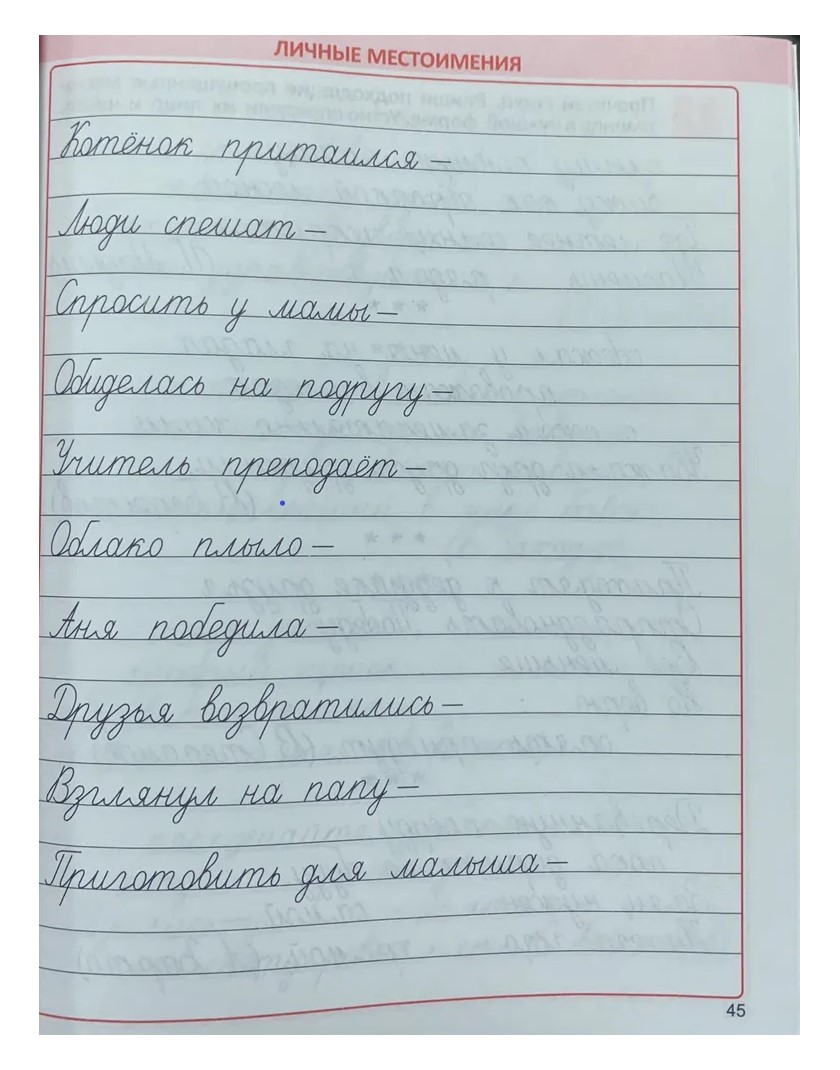 ЛИЧНЫЕ МЕСТОИМЕНИЯ
Котёнок притаился –
Люди спешат –
Спросить у мамы –
Обиделась на подругу –
Учитель преподаёт –
Облако плыло –
Аня победила –
Друзья возвратились –
Взглянул на папу –
Приготовить для малыша –
45